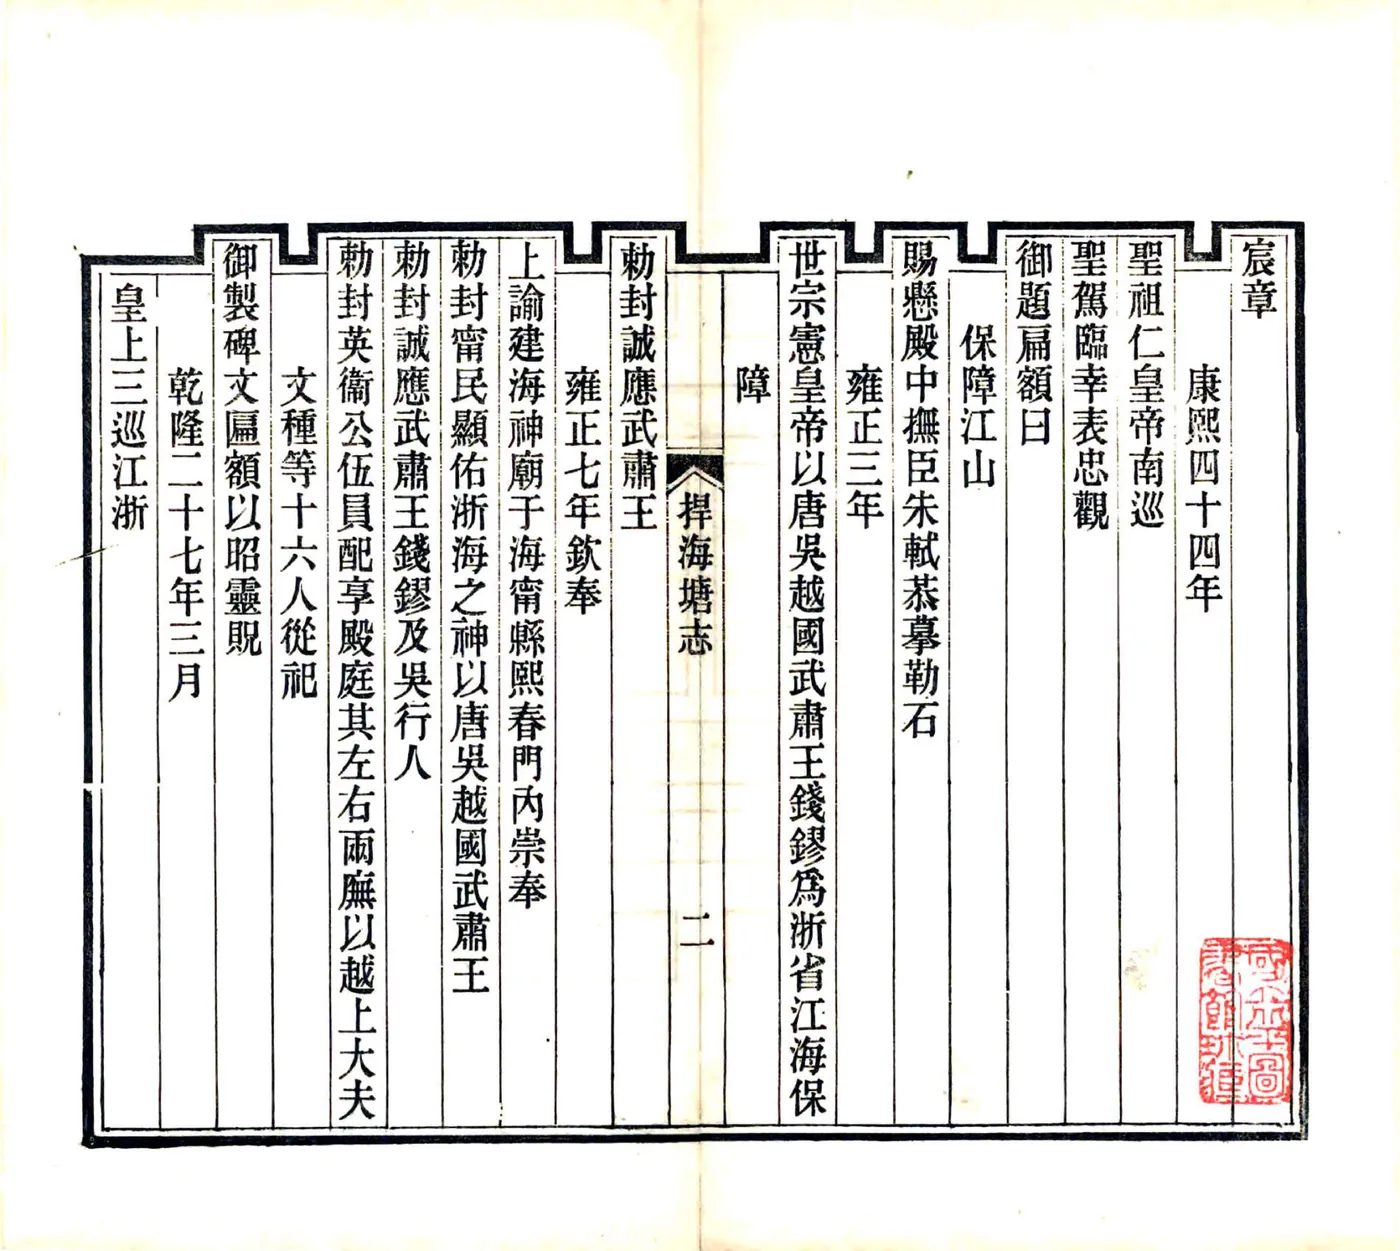 宸章
康熙四十四年
聖祖仁皇帝南巡
聖駕臨幸表忠觀
御題扁額曰
保障江山
賜懸殿中撫臣朱軾恭摹勒石
雍正三年
世宗憲皇帝以唐吳越國武肅王錢鏐爲浙省江海保
障
捍海塘志
二
勅封誠應武肅王
雍正七年欽奉
上諭建海神廟于海甯縣熙春門內崇奉
勅封甯民顯佑浙海之神以唐吳越國武肅王
勅封誠應武肅王錢鏐及吳行人
勅封英衞公伍員配享殿庭其左右兩廡以越上大夫
文種等十六人從祀
御製碑文匾額以昭靈貺
乾隆二十七年三月
皇上三巡江浙